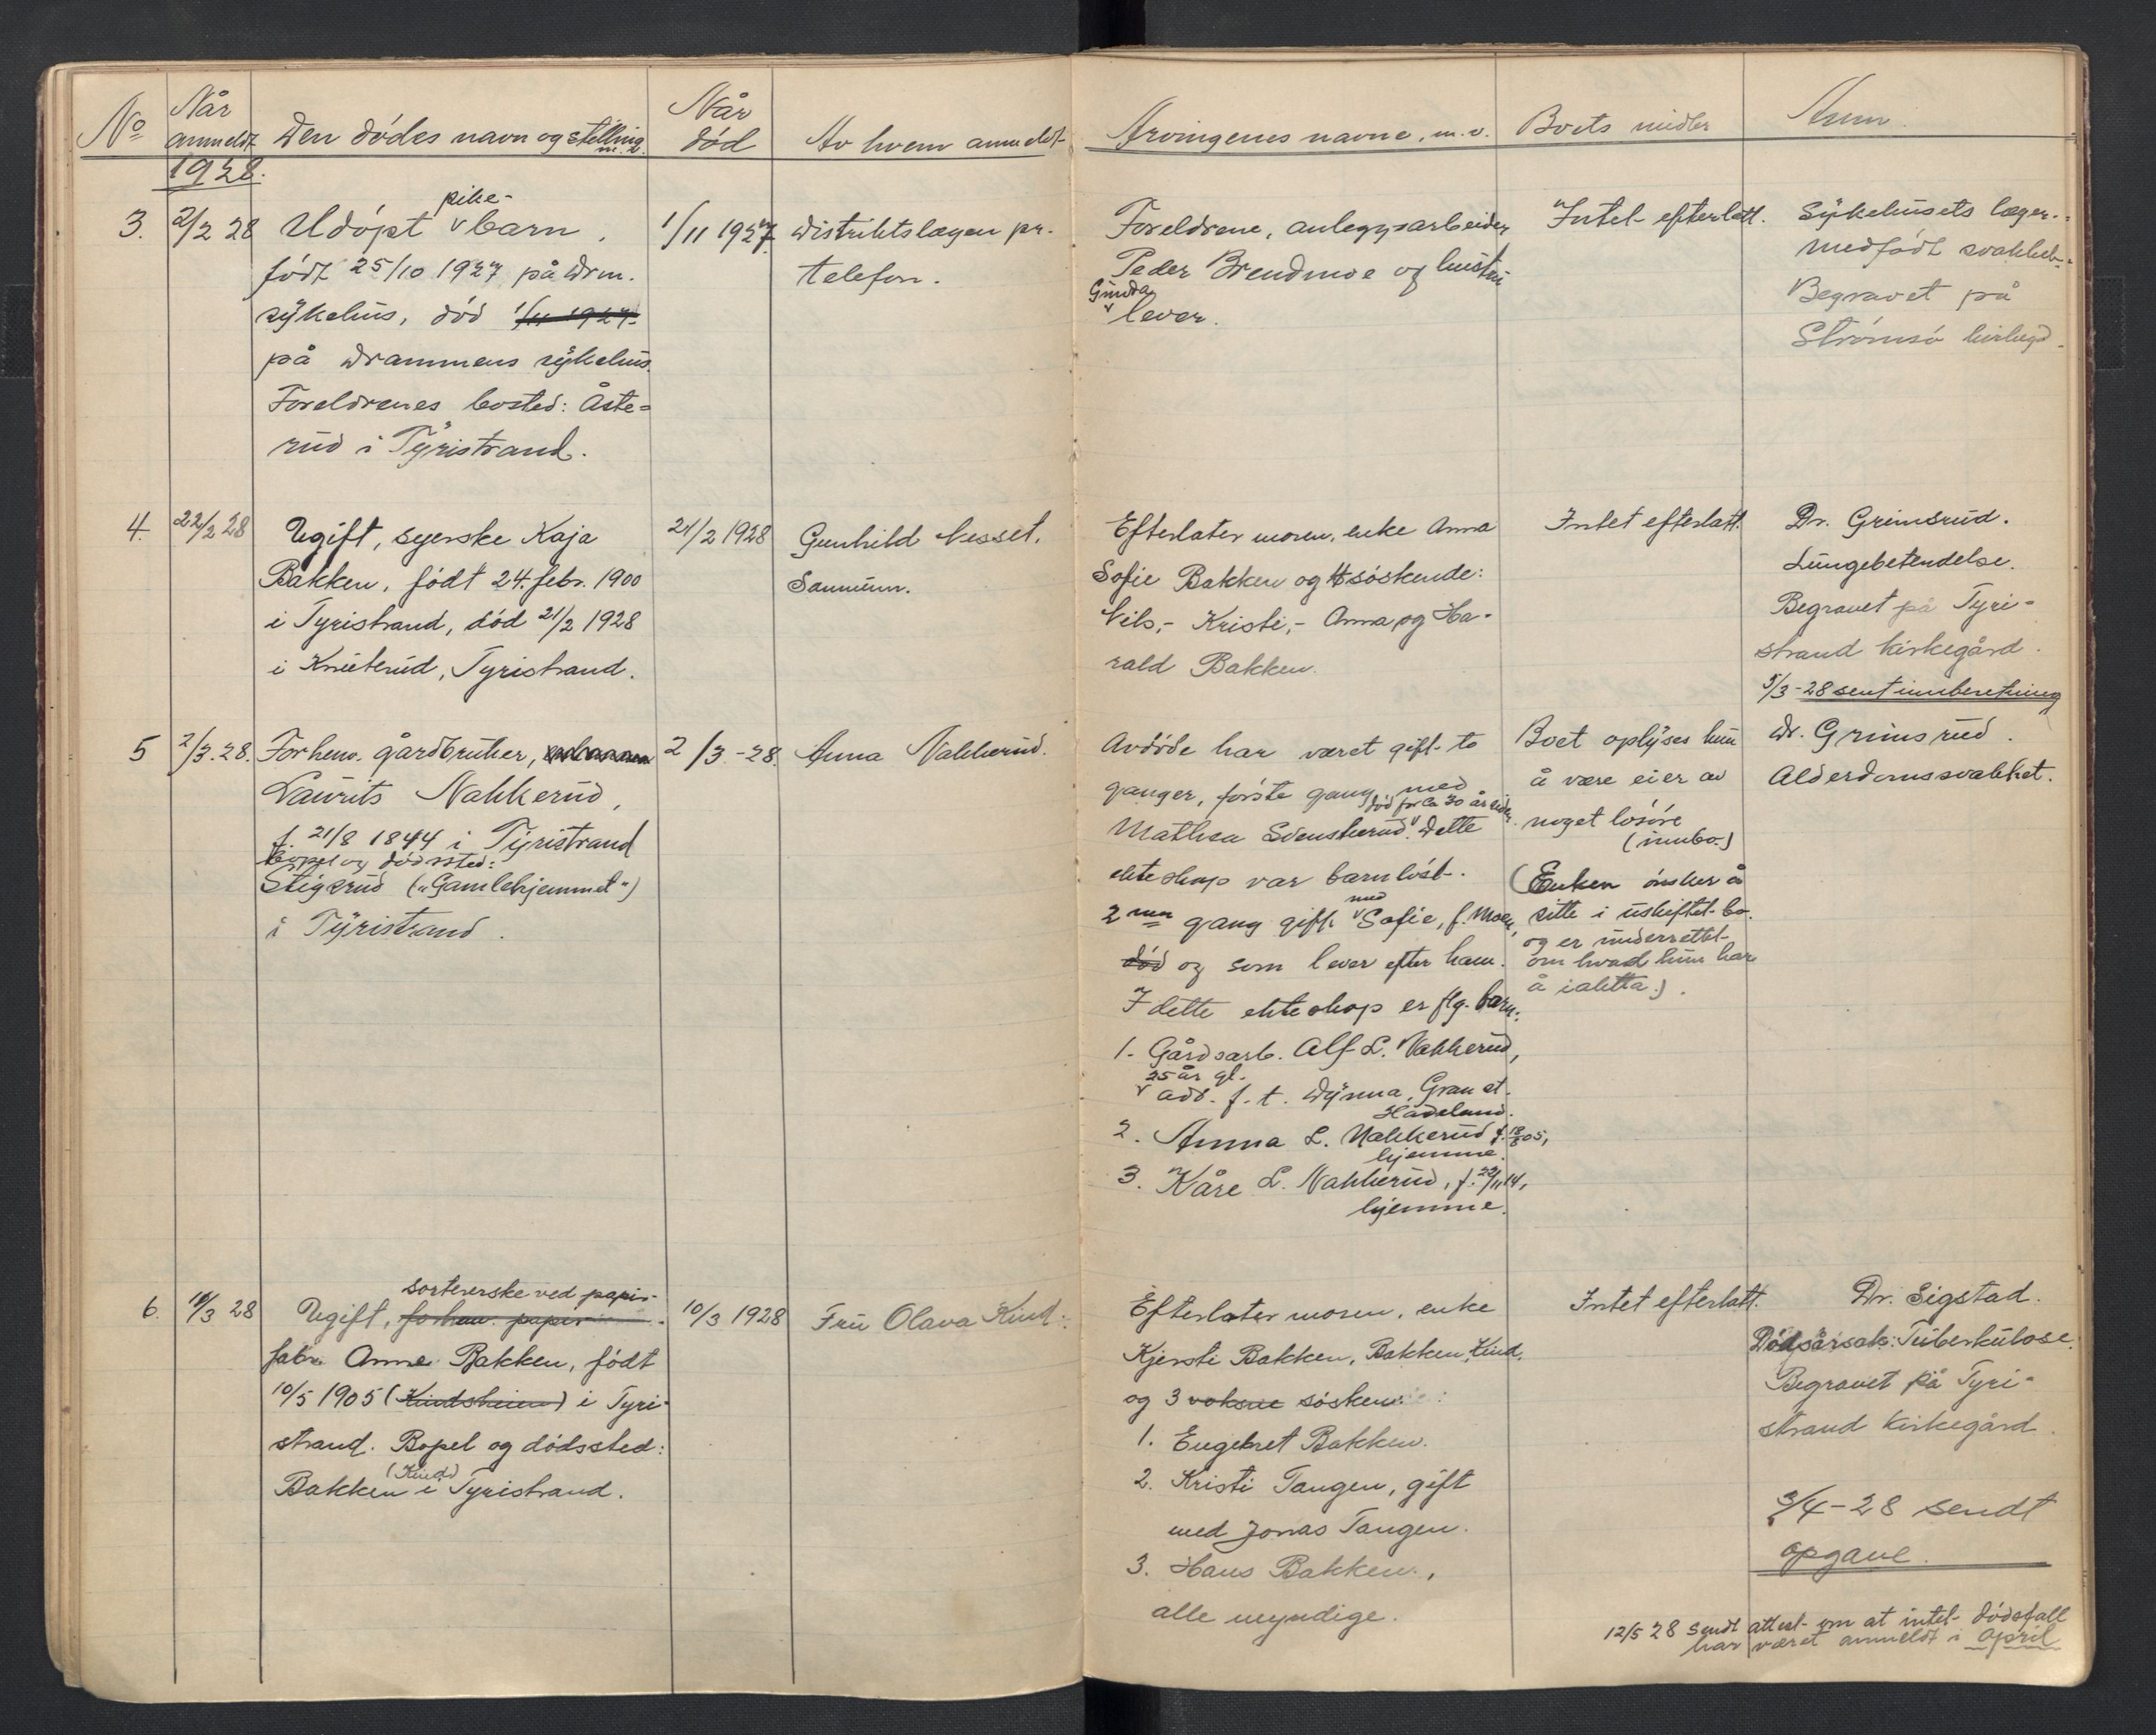 No
Når anmeldt
Den dødes navn og stilling m. v.
Når død
Av hvem anmeldt
Arvingenes navne, m. v.
Boets midler
Anm
1928.
3.
2/2 28
Udøpt pike-barn,
født 25/10 1927 på Drm.
sykehus, død 1/11 1927
på Drammens sykehus.
Foreldrenes bosted: Åste-
rud i Tyristrand.
1/11 1927
Distriktslægen pr.
telefon.
Foreldrene, anlegsarbeider
Peder Brendmoe og hustru
Gunda
lever.
Intet efterlatt.
Sykehusets læger.
Medfødt svakhet.
Begravet på
Strømsø kirkegd.
4.
22/2 28
Ugift, syerske Kaja
Bakken, født 24. febr. 1900
i Tyristrand, død 21/2 1928
i Knieterud, Tyristrand.
21/2 1928
Gunhild Nesset.
Sammen.
Efterlater moren, enke Anna
Sofie Bakken og 4 søskende:
Nils,- Kristi,- Anna og Ha-
rald Bakken.
Intet efterlatt.
Dr. Grimsrud.
Lungebetendelse.
Begravet på Tyri-
strand kirkegård.
5/3-28 sent innberetning
5
2/3.28.
Forhenv. gårdbruker,
Laurits Nakkerud,
f. 21/8 1844 i Tyristrand
Bopel og dødssted:
Stigerud ("Gamlehjemmet")
i Tyristrand.
2/3-28.
Anna Nakkerud.
Avdøde har været gift to
ganger, første gang med
død for ca 30 år siden.
Mathea Svenskerud. Dette
ekteskap var barnløst.
med
2nen gang gift Sofie, f. Moen,
død og som lever efter ham.
I dette ekteskap er flg. barn:
1. Gårdsarb. Alf L. Nakkerud,
25 år gl.
adr. f. t. Dynna, Gran st.
Hadeland.
2. Anna L. Nakkerud f. 18/8 05,
hjemme.
3. Kåre L. Nakkerud, f. 22/11 14,
hjemme.
Boet oplyses kun
å være eier av
noget løsøre
(innbo.)
(Enken ønsker å
sitte i uskiftet bo.
og er underrettet
om hvad hun har
å iaktta.).
Dr. Grimsrud.
Alderdomssvakhet.
6.
10/3 28
sortererske ved papir-
Ugift, forhenv. papir
fabr. Anne Bakken, født
10/5 1905 (Kindsheim) i Tyri-
strand. Bopel og dødssted:
(Kind)
Bakken i Tyristrand.
10/3 1928
Fru Olava Kind.
Efterlater moren, enke
Kjersti Bakken, Bakken, Kind.
og 3 voksne søsken:
1. Engebret Bakken.
2. Kristi Tangen, gift
med Jonas Tangen.
3. Hans Bakken.,
alle myndige.
Intet efterlatt.
Dr. Sigstad.
Dødsårsak: Tuberkulose.
Begravet på Tyri-
strand kirkegård.
3/4-28 sendt
opgave.
12/5 28 sendt attest om at intet dødsfall
har været anmeldt i April